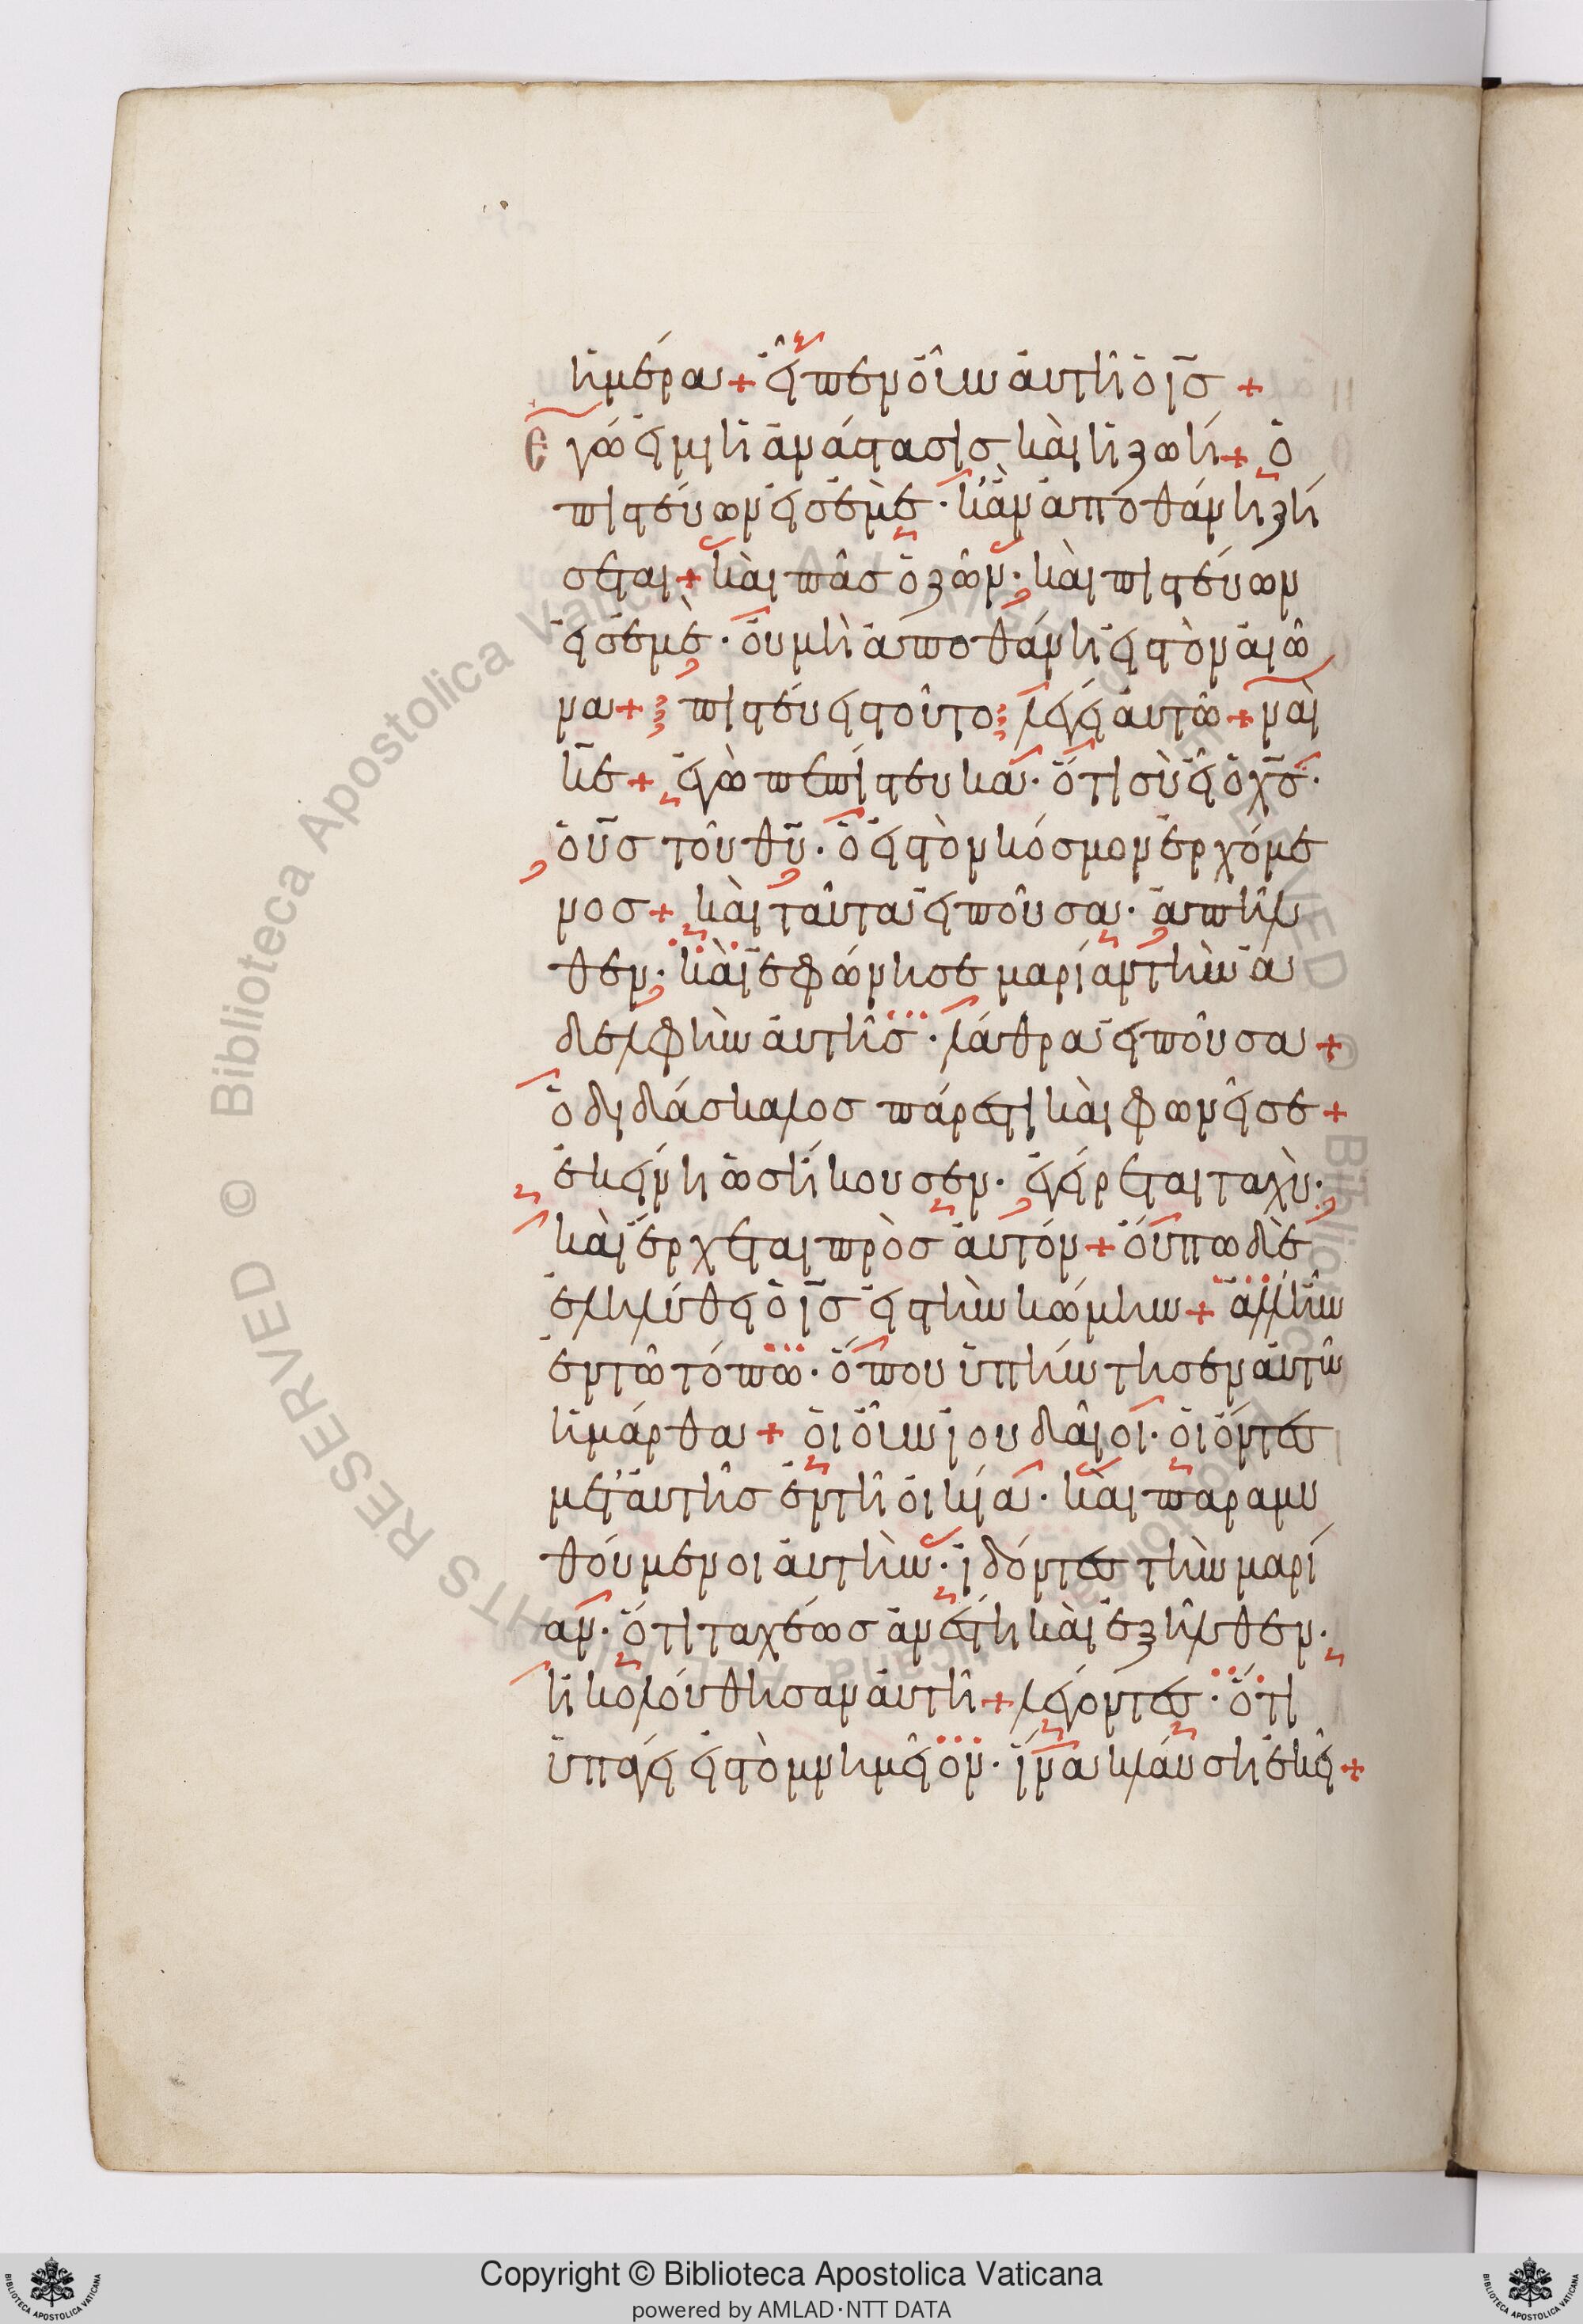 ἡμέρα + εἶπεν οὖν αὐτῆ ὁ ις +
Ἐγώ εἰμι ἡ ἀνάστασις καὶ ἡ ζωή + ὁ
πιστεύων εἰς ἐμὲ · κἂν ἀποθάνη ζή
σεται + καὶ πᾶς ὁ ζῶν · καὶ πιστεύων
εἰς ἐμὲ · οὐ μὴ ἀποθάνη εἰς τὸν αἰῶ
να + πιστεύεις τοῦτο λέγει αὐτῶ + ναὶ
κε + ἐγὼ πεπίστευκα · ὅτι σὺ εἶ ὁ χς ·
ὁ υς τοῦ θυ · ὁ εἰς τὸν κόσμον ἐρχόμε
νος + καὶ ταῦτα εἰποῦσα · ἀπῆλ
θεν · καὶ ἐφώνησε μαρίαν τὴν ἀ
δελφὴν αὐτῆς · λάθρα εἰποῦσα +
ὁ διδάσκαλος πάρεστι καὶ φωνεῖ σε +
ἐκείνη ὡς ἤκουσεν · ἐγείρεται ταχὺ ·
καὶ ἔρχεται πρὸς αὐτόν + οὔπω δὲ
ἐληλύθει ὁ ις εἰς τὴν κώμην + ἀλλ' ἦν
ἐν τῶ τόπω · ὅπου ὑπήντησεν αὐτῶ
ἡ μάρθα + οἱ οὖν ἰουδαῖοι · οἱ ὄντες
μετ' αὐτῆς ἐν τῆ οἰκία · καὶ παραμυ
θούμενοι αὐτὴν · ἰδόντες τὴν μαρί
αν · ὅτι ταχέως ἀνέστη καὶ ἐξῆλθεν ·
ἠκολούθησαν αὐτῆ + λέγοντες · ὅτι
ὑπάγει εἰς τὸ μνημεῖον · ἵνα κλαύση ἐκεῖ +
© Biblioteca Apostolica Vaticana, ALL RIGHTS RESERVED
Copyright © Biblioteca Apostolica Vaticana
powered by AMLAD·NTT DATA